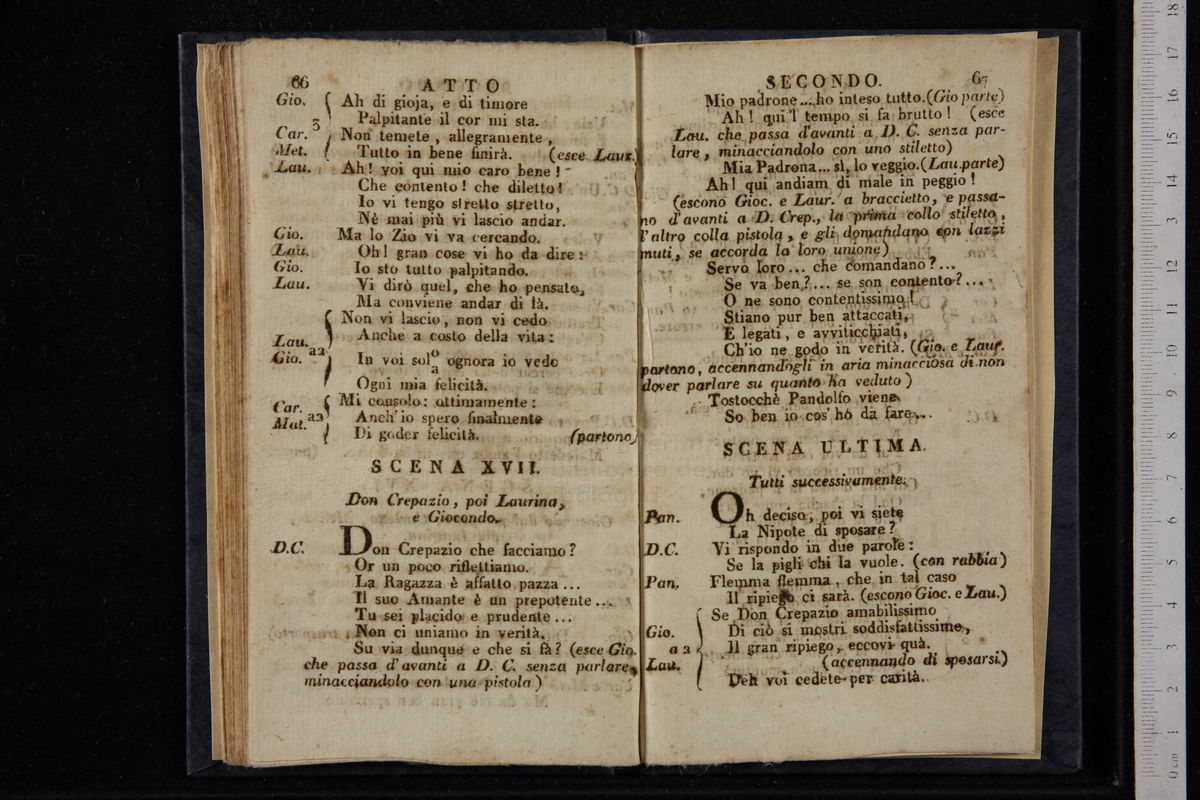 66
ATTO
Gio. Ah di gioja, e di timore
3 Palpitante il cor mi sta.
Car. Non temete, allegramente,
Met. Tutto in bene finirà. (esce Laur.)
Lau. Ah! voi qui mio caro bene!
Che contento! che diletto!
Io vi tengo stretto stretto,
Nè mai più vi lascio andar.
Gio. Ma lo Zio vi va cercando.
Lau. Oh! gran cose vi ho da dire:
Gio. Io sto tutto palpitando.
Lau. Vi dirò quel, che ho pensato,
Ma conviene andar di là.
Non vi lascio, non vi cedo
Lau. Anche a costo della vita:
Gio. a2 In voi sol o/a ognora io vedo
Ogni mia felicità.
Car. Mi consolo: ottimamente:
Mat. a2 Anch'io spero finalmente
Di goder felicità. (partono)
SCENA XVII.
Don Crepazio, poi Laurina,
e Giocondo.
D.C. Don Crepazio che facciamo?
Or un poco riflettiamo.
La Ragazza è affatto pazza ...
Il suo Amante è un prepotente ...
Tu sei placido e prudente ...
Non ci uniamo in verità.
Su via dunque e che si fà? (esce Gio.
che passa d'avanti a D. C. senza parlare,
minacciandolo con una pistola)
SECONDO.
67
Mio padrone ... ho inteso tutto. (Gio parte)
Ah! qui 'l tempo si fa brutto! (esce
Lau. che passa d'avanti a D. C. senza par-
lare, minacciandolo con uno stiletto)
Mia Padrona... sì, lo veggio. (Lau. parte)
Ah! qui andiam di male in peggio!
(escono Gioc. e Laur. a braccietto, e passa-
no d'avanti a D. Crep., la prima collo stiletto,
l'altro colla pistola, e gli domandano con lazzi
muti, se accorda la loro unione)
Servo loro ... che comandano?...
Se va ben?... se son contento?...
O ne sono contentissimo!
Stiano pur ben attaccati,
E legati, e avviticchiati,
Ch'io ne godo in verità. (Gio. e Laur.
partono, accennandogli in aria minacciosa di non
dover parlare su quanto ha veduto)
Tostocchè Pandolfo viene
So ben io cos' hó da fare...
SCENA ULTIMA.
Tutti successivamente.
Pan. Oh deciso, poi vi siete
La Nipote di sposare?
D.C. Vi rispondo in due parole:
Se la pigli chi la vuole. (con rabbia)
Pan. Flemma flemma, che in tal caso
Il ripiego ci sarà. (escono Gioc. e Lau.)
Se Don Crepazio amabilissimo
Gio. Di ciò si mostri soddisfattissimo,
a2 Il gran ripiego, eccovi quà.
Lau. (accennando di sposarsi)
Deh voi cedete per carità.
0 cm 1 2 3 4 5 6 7 8 9 10 11 12 13 14 15 16 17 18